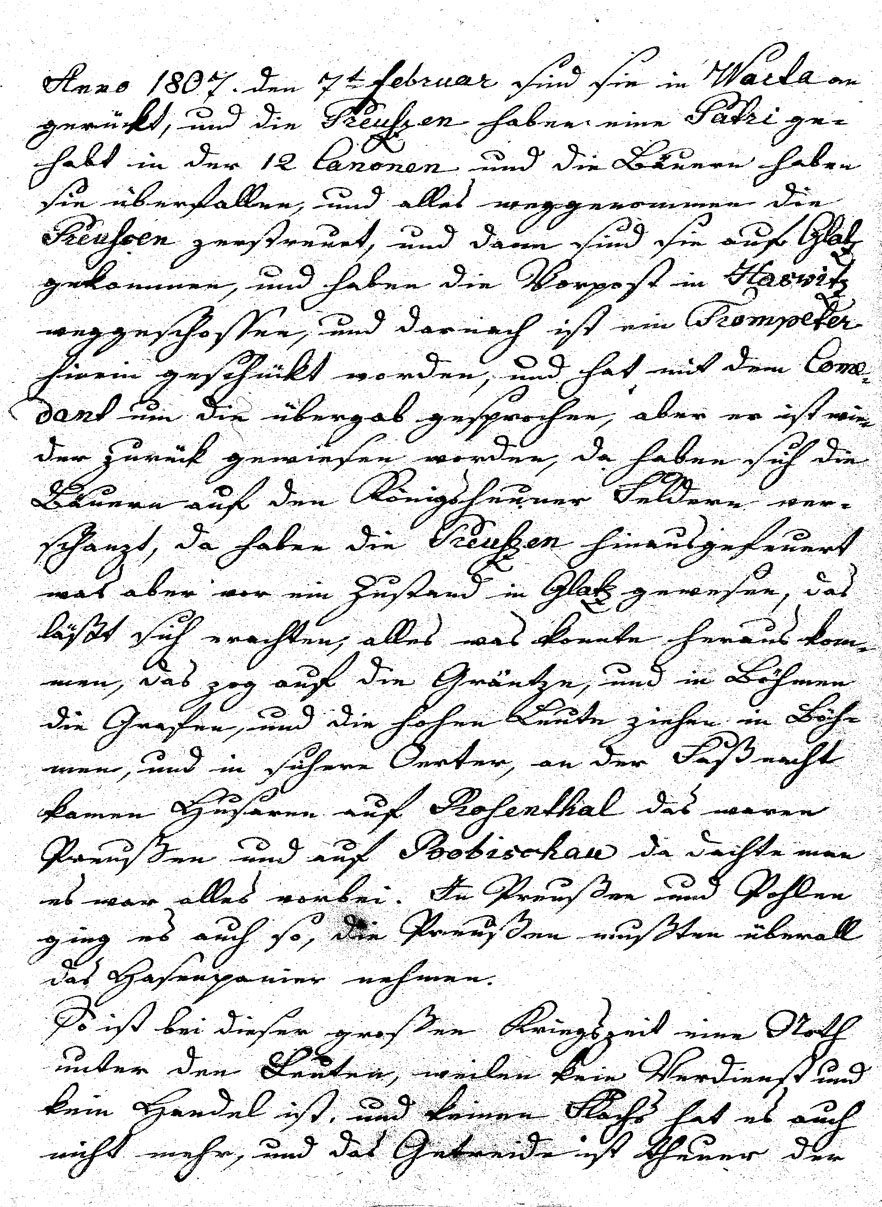 Anno 1807. den 7t februar sind sie in Warta an
gerückt, und die Preußen haben eine Patri ge=
habt in der 12 Canonen und die Bäuern haben
sie überfallen, und alles weggenommen die
Preussen zerstreuet, und dann sind sie auf Glatz
gekommen, und haben die Vorpost in Haswitz
weggeschossen, und darnach ist ein Trompeter
hirein geschückt worden, und hat mit dem Com=
dant um die übergab gesprochen, aber er ist wie=
der zurück gewiesen worden, da haben sich die
Bäuern auf den Königsheuner Feldern ver=
schanzt, da haben die Preußen hinausgefeuert
was aber vor ein Zustand in Glatz gewesen, das
läßt sich erachten, alles was konnte heraus kom=
men, das zog auf die Gräntze, und in Böhmen
die Grafen, und die hohen Leute ziehen in Böh=
men, und in sichere Oerter, an der Faßnacht
kamen Husaren auf Rosenthal das waren
Preußen und auf Boobischau da dachte man
es war alles vorbei. In Preußen und Pohlen
ging es auch so, die Preußen mußten überall
das Hasenpanier nehmen.
So ist bei dieser großen Kriegszeit eine Noth
unter den Leuten, weilen kein Verdienst und
kein Handel ist, und keinen Flachs hat es auch
nicht mehr, und das Getreide ist theuer der